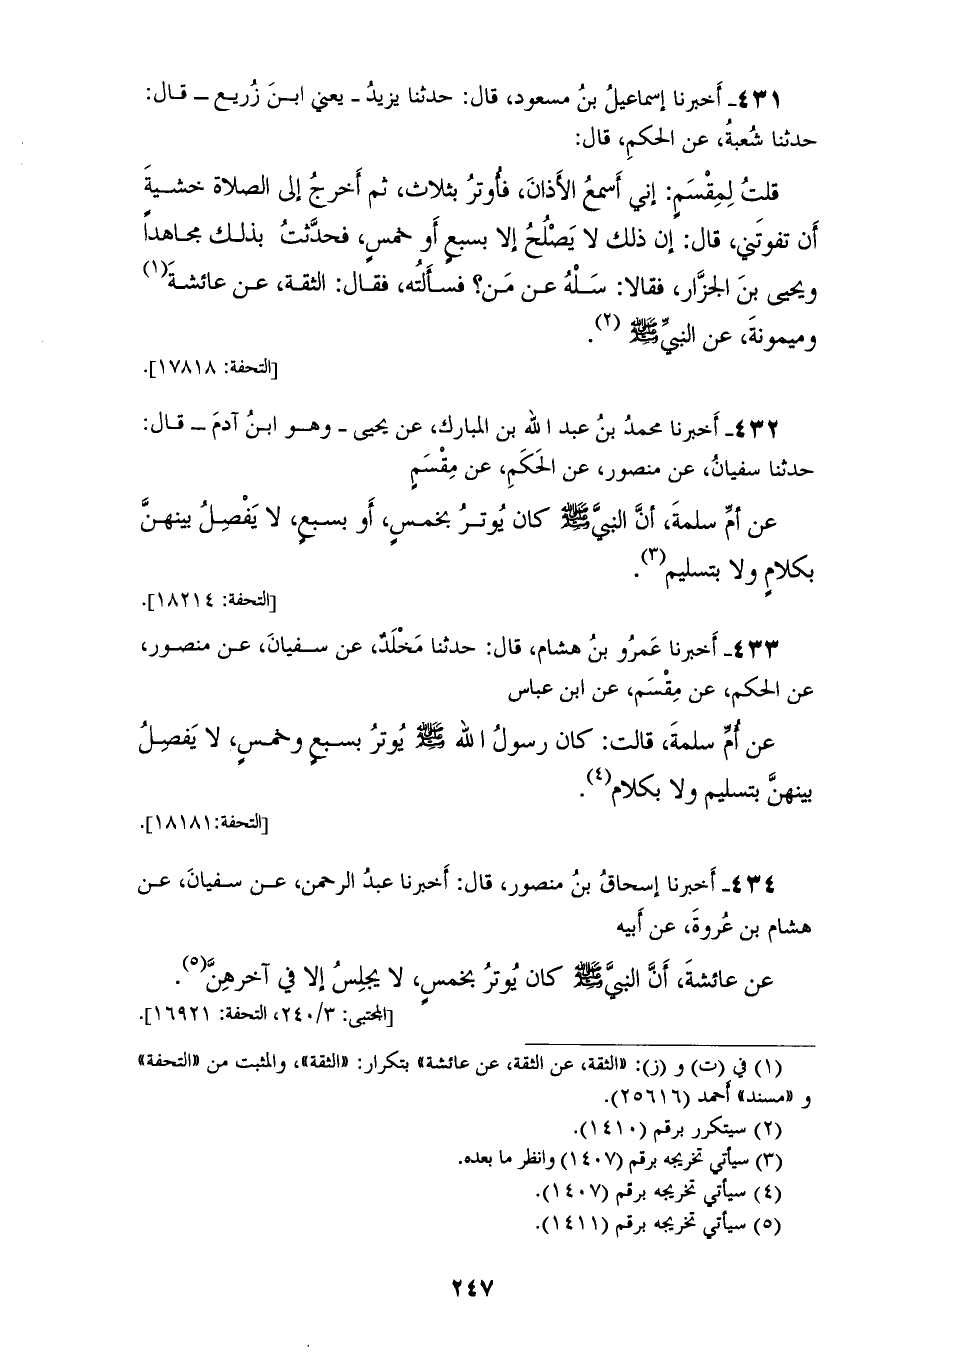 ٤٣١ـ أَخبرنا إسماعيلُ بنُ مسعود، قال: حدثنا يزيدُ ـ يعني ابنَ زُريع ـ قال:
حدثنا شُعبةُ، عن الحكمِ، قال:
قلتُ لِمِقْسَمٍ: إني أَسمعُ الأذانَ، فأُوترُ بثلاث، ثم أَخرجُ إلى الصلاة خشيةَ
أَن تفوتَني، قال: إن ذلك لا يَصْلُحُ إلا بسبعٍ أَو خمسٍ، فحدَّثتُ بذلك مجاهداً
ويحيى بنَ الجزَّار، فقالا: سَلْهُ عن مَن؟ فسأَلتُه، فقال: الثقة، عن عائشةَ(١)
وميمونةَ، عن النبيِّ ﷺ (٢).
[التحفة: ١٧٨١٨].
٤٣٢ـ أَخبرنا محمدُ بنُ عبد الله بن المبارك، عن يحيى ـ وهو ابنُ آدمَ ـ قال:
حدثنا سفيانُ، عن منصور، عن الحَكَمِ، عن مِقْسَمٍ
عن أمِّ سلمةَ، أنَّ النبيَّ ﷺ كان يُوترُ بخمسٍ، أَو بسبعٍ، لا يَفْصِلُ بينهنَّ
بكلامٍ ولا بتسليم(٣).
[التحفة: ١٨٢١٤].
٤٣٣ـ أَخبرنا عَمرُو بنُ هشام، قال: حدثنا مَخْلَدٌ، عن سفيانَ، عن منصور،
عن الحكم، عن مِقْسَم، عن ابن عباس
عن أُمِّ سلمةَ، قالت: كان رسولُ الله ﷺ يُوترُ بسبعٍ وخمسٍ، لا يَفصِلُ
بينهنَّ بتسليم ولا بكلام(٤).
[التحفة: ١٨١٨١].
٤٣٤ـ أَخبرنا إسحاقُ بنُ منصور، قال: أَخبرنا عبدُ الرحمن، عن سفيانَ، عن
هشام بن عُروةَ، عن أَبيه
عن عائشةَ، أَنَّ النبيَّ ﷺ كان يُوترُ بخمسٍ، لا يجلِسُ إلا في آخرهِنَّ(٥).
[المجتبى: ٢٤٠/٣، التحفة: ١٦٩٢١].
(١) في (ت) و (ز): «الثقة، عن الثقة، عن عائشة» بتكرار: «الثقة»، والمثبت من «التحفة»
و «مسند» أحمد (٢٥٦١٦).
(٢) سيتكرر برقم (١٤١٠).
(٣) سيأتي تخريجه برقم (١٤٠٧) وانظر ما بعده.
(٤) سيأتي تخريجه برقم (١٤٠٧).
(٥) سيأتي تخريجه برقم (١٤١١).
٢٤٧